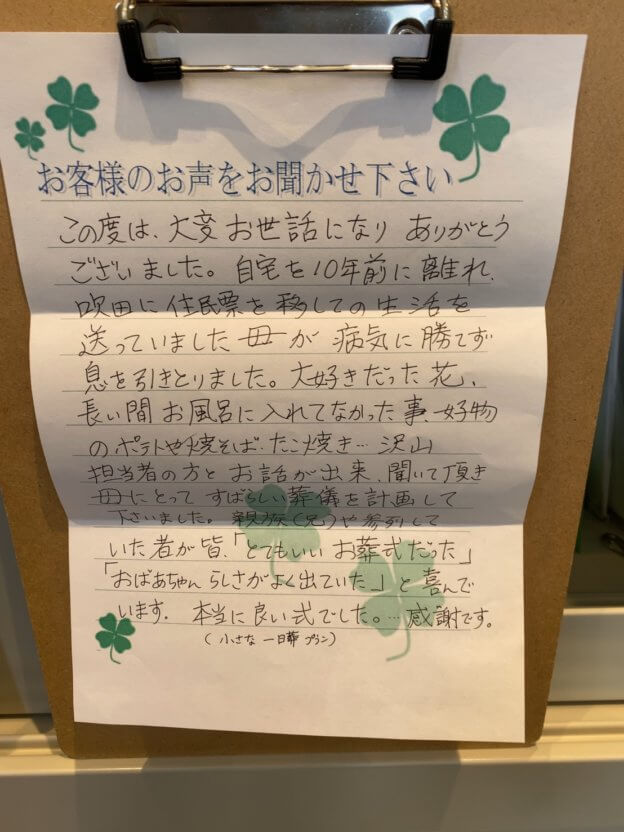 お客様のお声をお聞かせ下さい
この度は、大変お世話になり ありがとう
ございました。自宅を10年前に離れ、
吹田に住民票を移しての生活を
送っていました母が 病気に勝てず
息を引きとりました。大好きだった花、
長い間お風呂に入れてなかった事、好物
のポテトや焼そば、たこ焼き… 沢山
担当者の方と お話が出来、聞いて頂き
母にとって すばらしい葬儀を計画して
下さいました。親族(兄)や参列して
いた者が皆、「とてもいい お葬式だった」
「おばあちゃん らしさがよく出ていた」と喜んで
います。本当に良い式でした。…感謝です。
(小さな 一日葬 プラン)